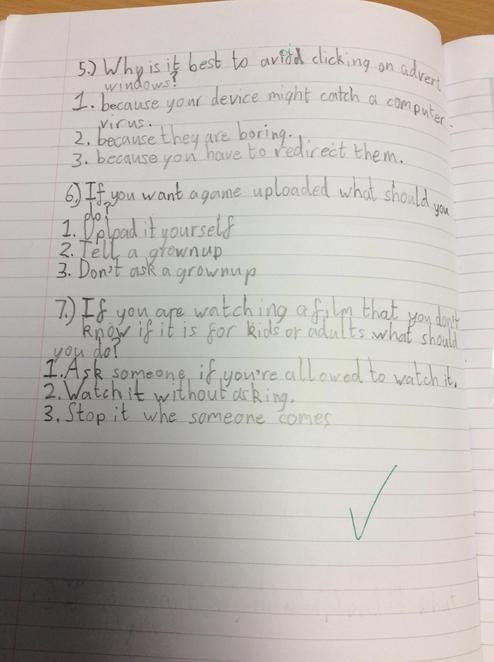 5.) Why is it best to avoid clicking on advert
windows?
1. because your device might catch a computer
virus.
2. because they are boring.
3. because you have to redirect them.
6.) If you want a game uploaded what should you
do?
1. Upload it yourself
2. Tell a grownup
3. Don't ask a grownup
7.) If you are watching a film that you don't
know if it is for kids or adults what should
you do?
1. Ask someone if you're allowed to watch it.
2. Watch it without asking.
3. Stop it whe someone comes